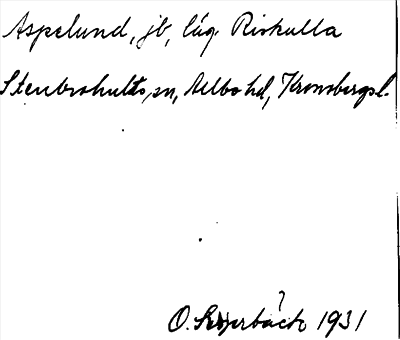 Aspelund, jb, låg. Riskulla
Stenbrohults sn, Allbo hd, Kronobergs l.
?
O. 1931